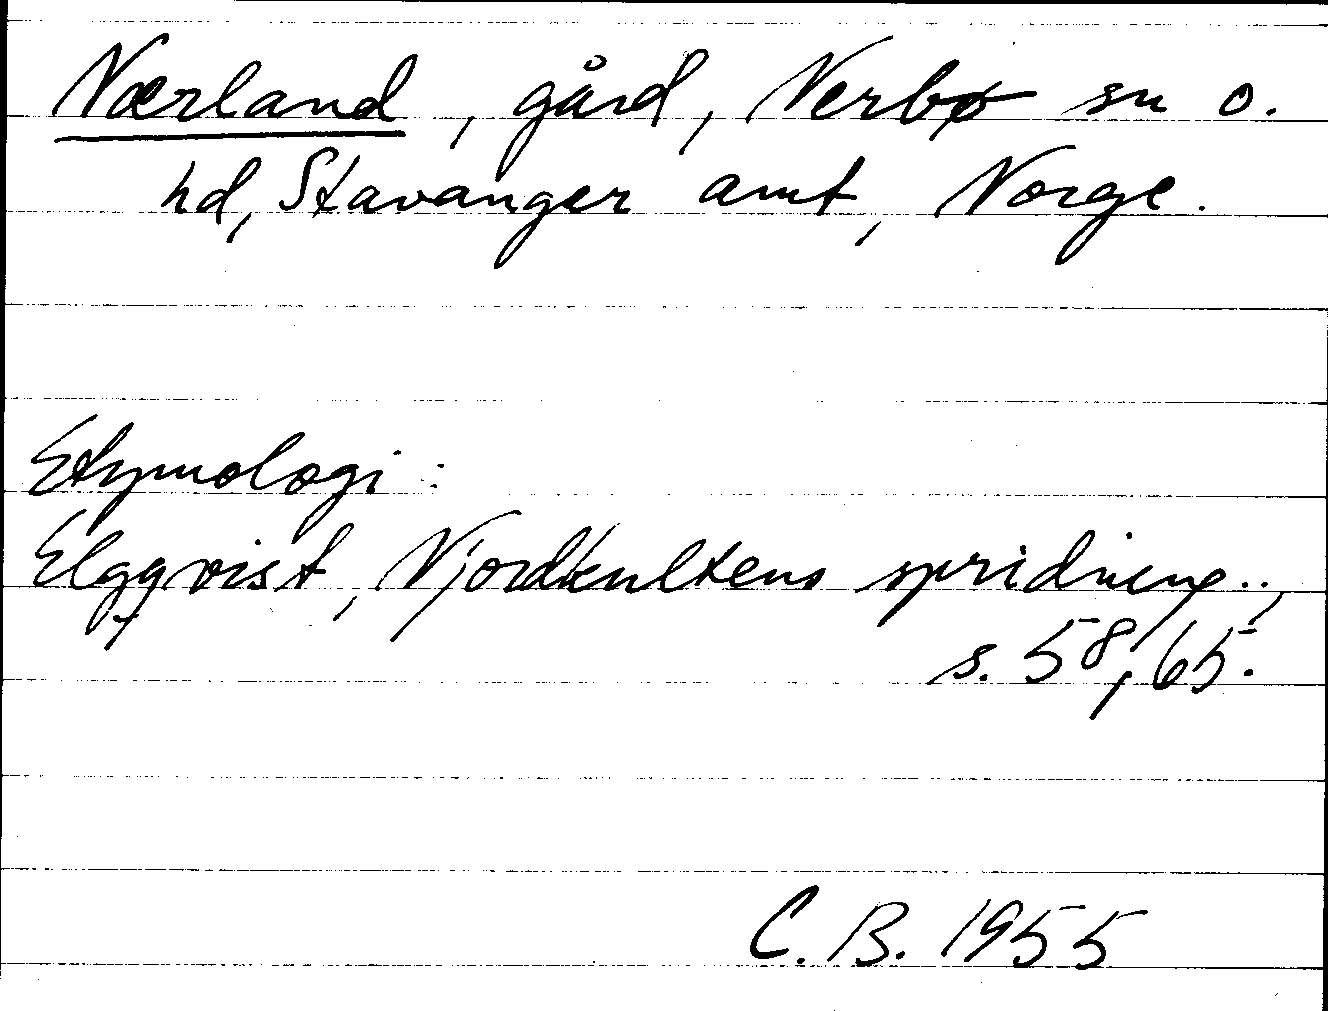 Nærland, gård, Nerbø sn o.
hd, Stavanger amt, Norge.
Etymologi:
Elgqvist, Njordkultens spridning..,
s. 58, 65.
C. B. 1955